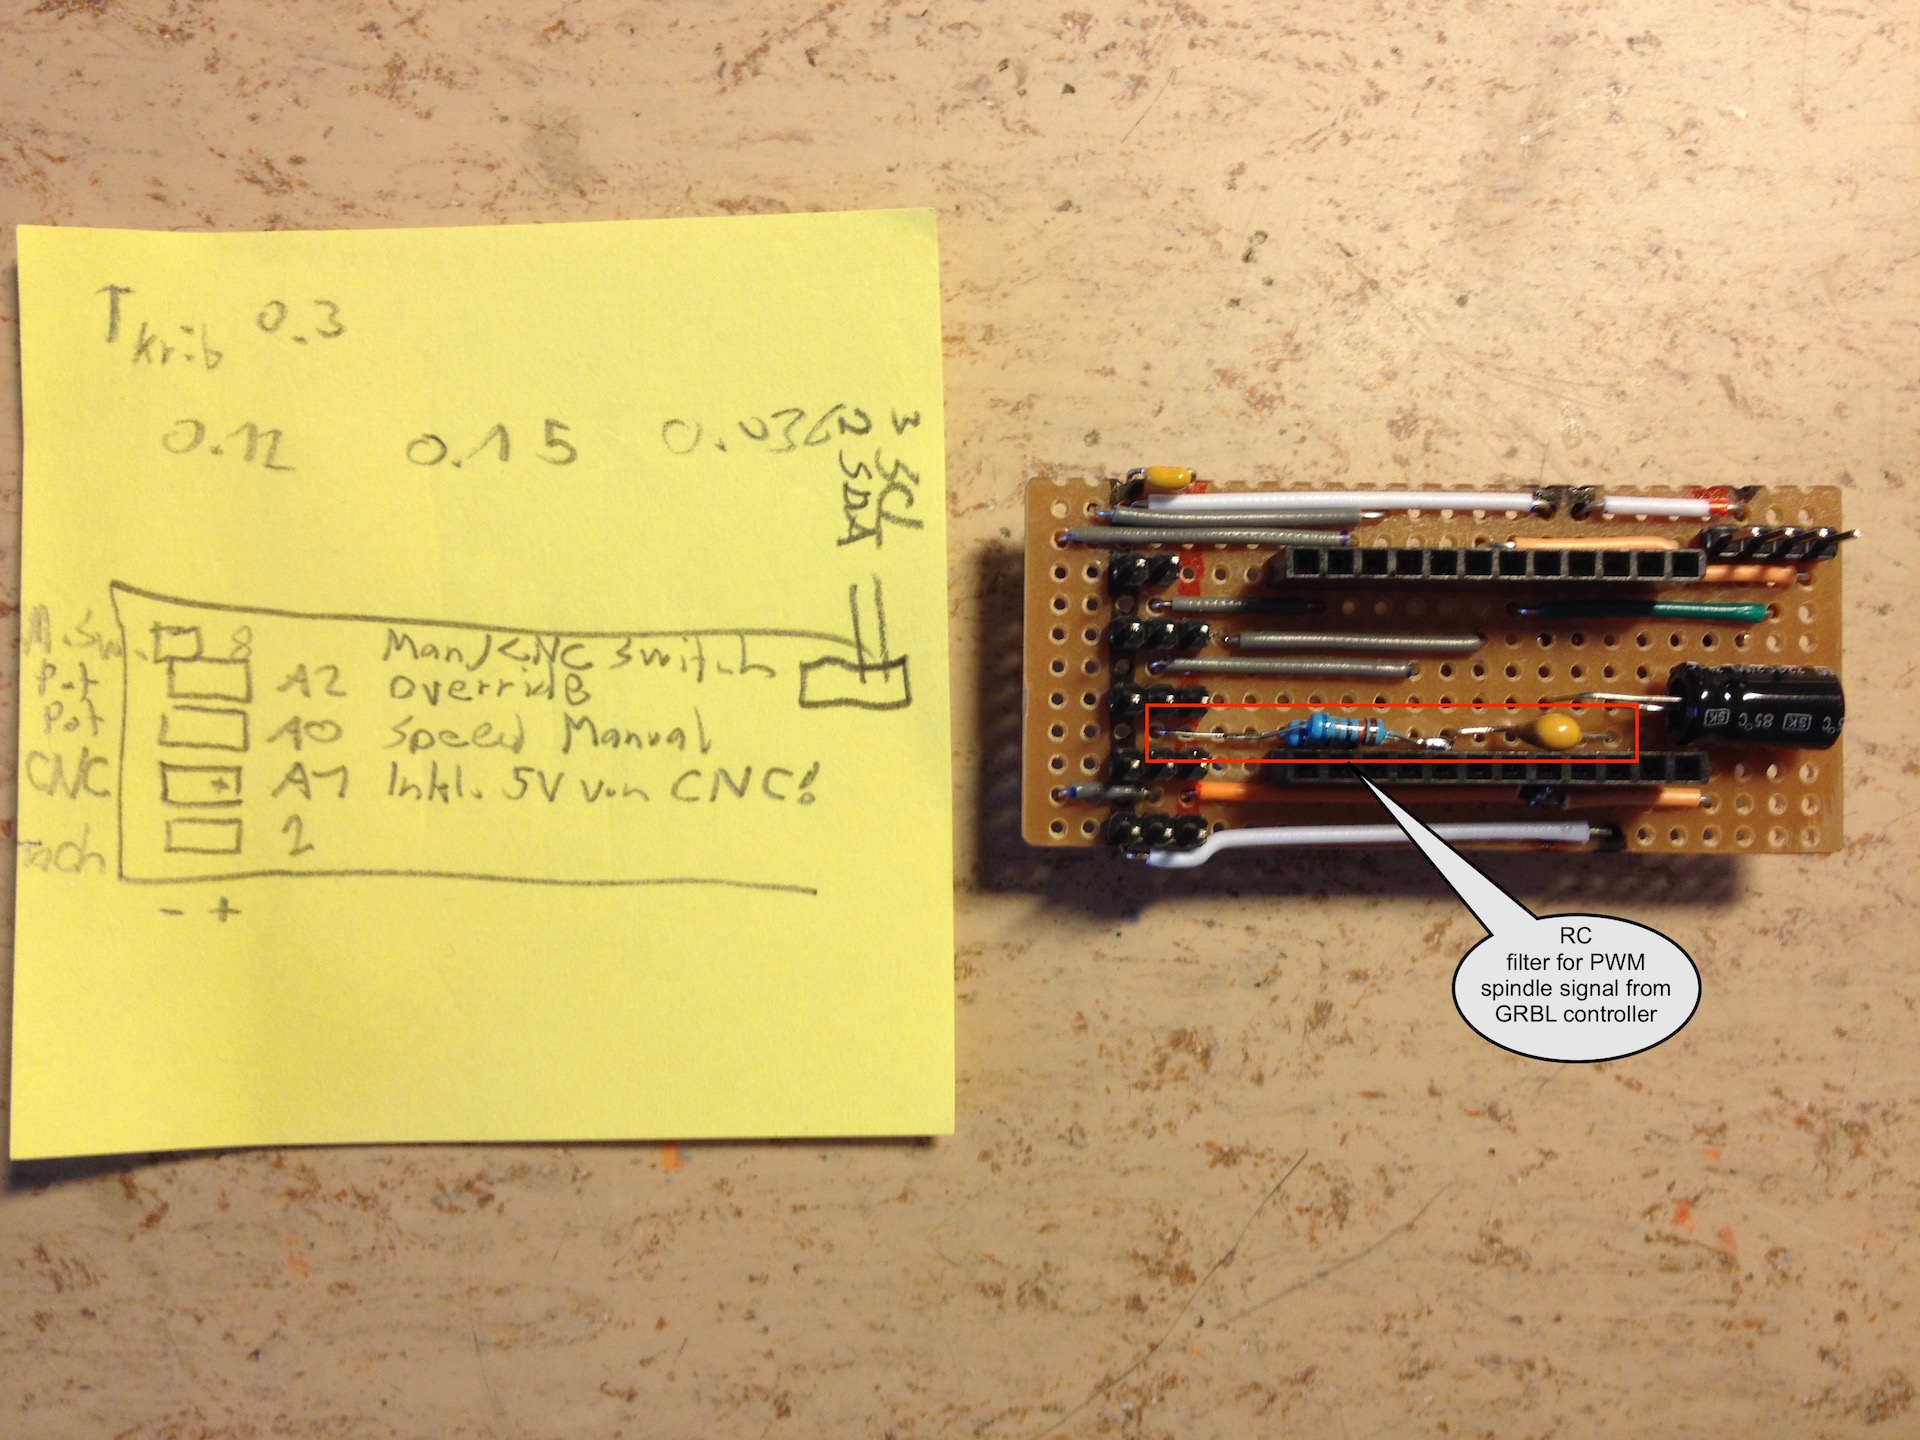 T krib 0.3
0.12 0.15 0.036
3 SCL
2 SDA
M.Sw. 8 Man/CNC Switch
Pot A2 Override
Pot A0 Speed Manual
CNC + A1 Inkl. 5V von CNC!
Tach 2
- +
RC
filter for PWM
spindle signal from
GRBL controller
85°C
SK
SK